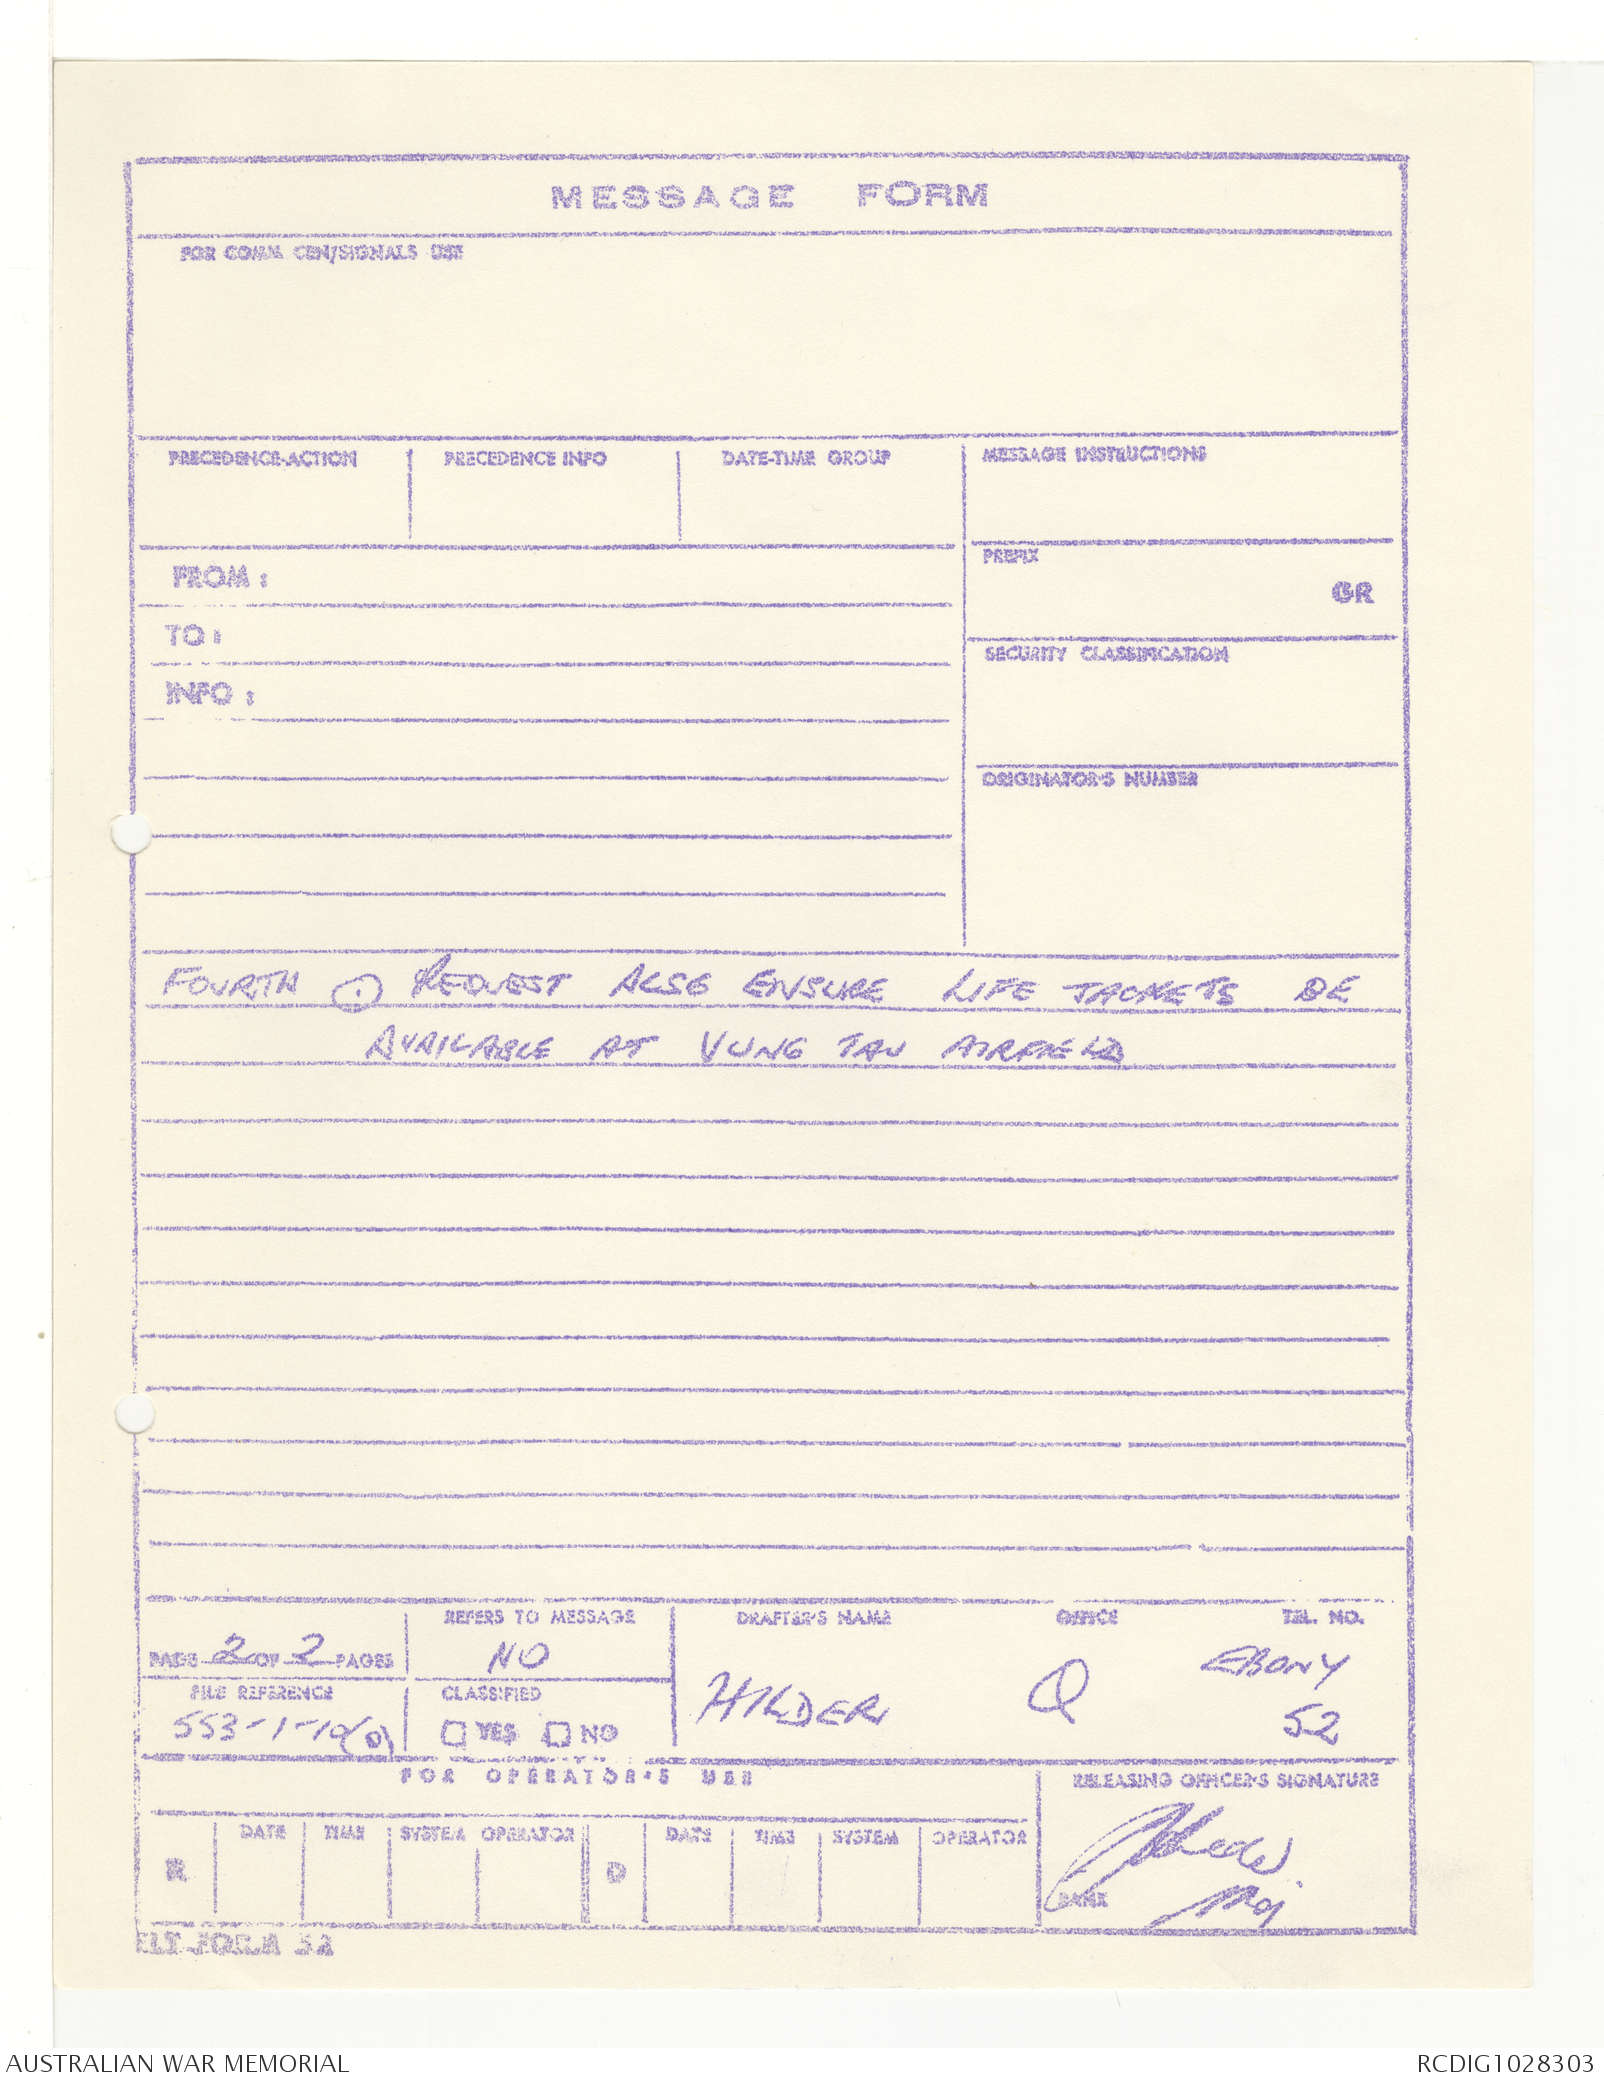 MESSAGE FORM
FOR COMM CEN/SIGNALS USE
PRECEDENCE-ACTION
PRECEDENCE INFO
DATE-TIME GROUP
MESSAGE INSTRUCTIONS
FROM :
PREFIX
GR
TO :
SECURITY CLASSIFICATION
INFO :
ORIGINATOR'S NUMBER
FOURTH REQUEST ALSG ENSURE LIFE JACKETS BE
AVAILABLE AT VUNG TAU AIRFIELD
PAGE 2 OF 2 PAGES
REFERS TO MESSAGE
NO
DRAFTER'S NAME
HILDER
OFFICE
Q
TEL. NO.
EBONY
52
FILE REFERENCE
553-1-10(O)
CLASSIFIED
YES NO
FOR OPERATOR'S USE
RELEASING OFFICER'S SIGNATURE
R DATE TIME SYSTEM OPERATOR D DATE TIME SYSTEM OPERATOR
RANK Maj
FORM
AUSTRALIAN WAR MEMORIAL
RCDIG1028303